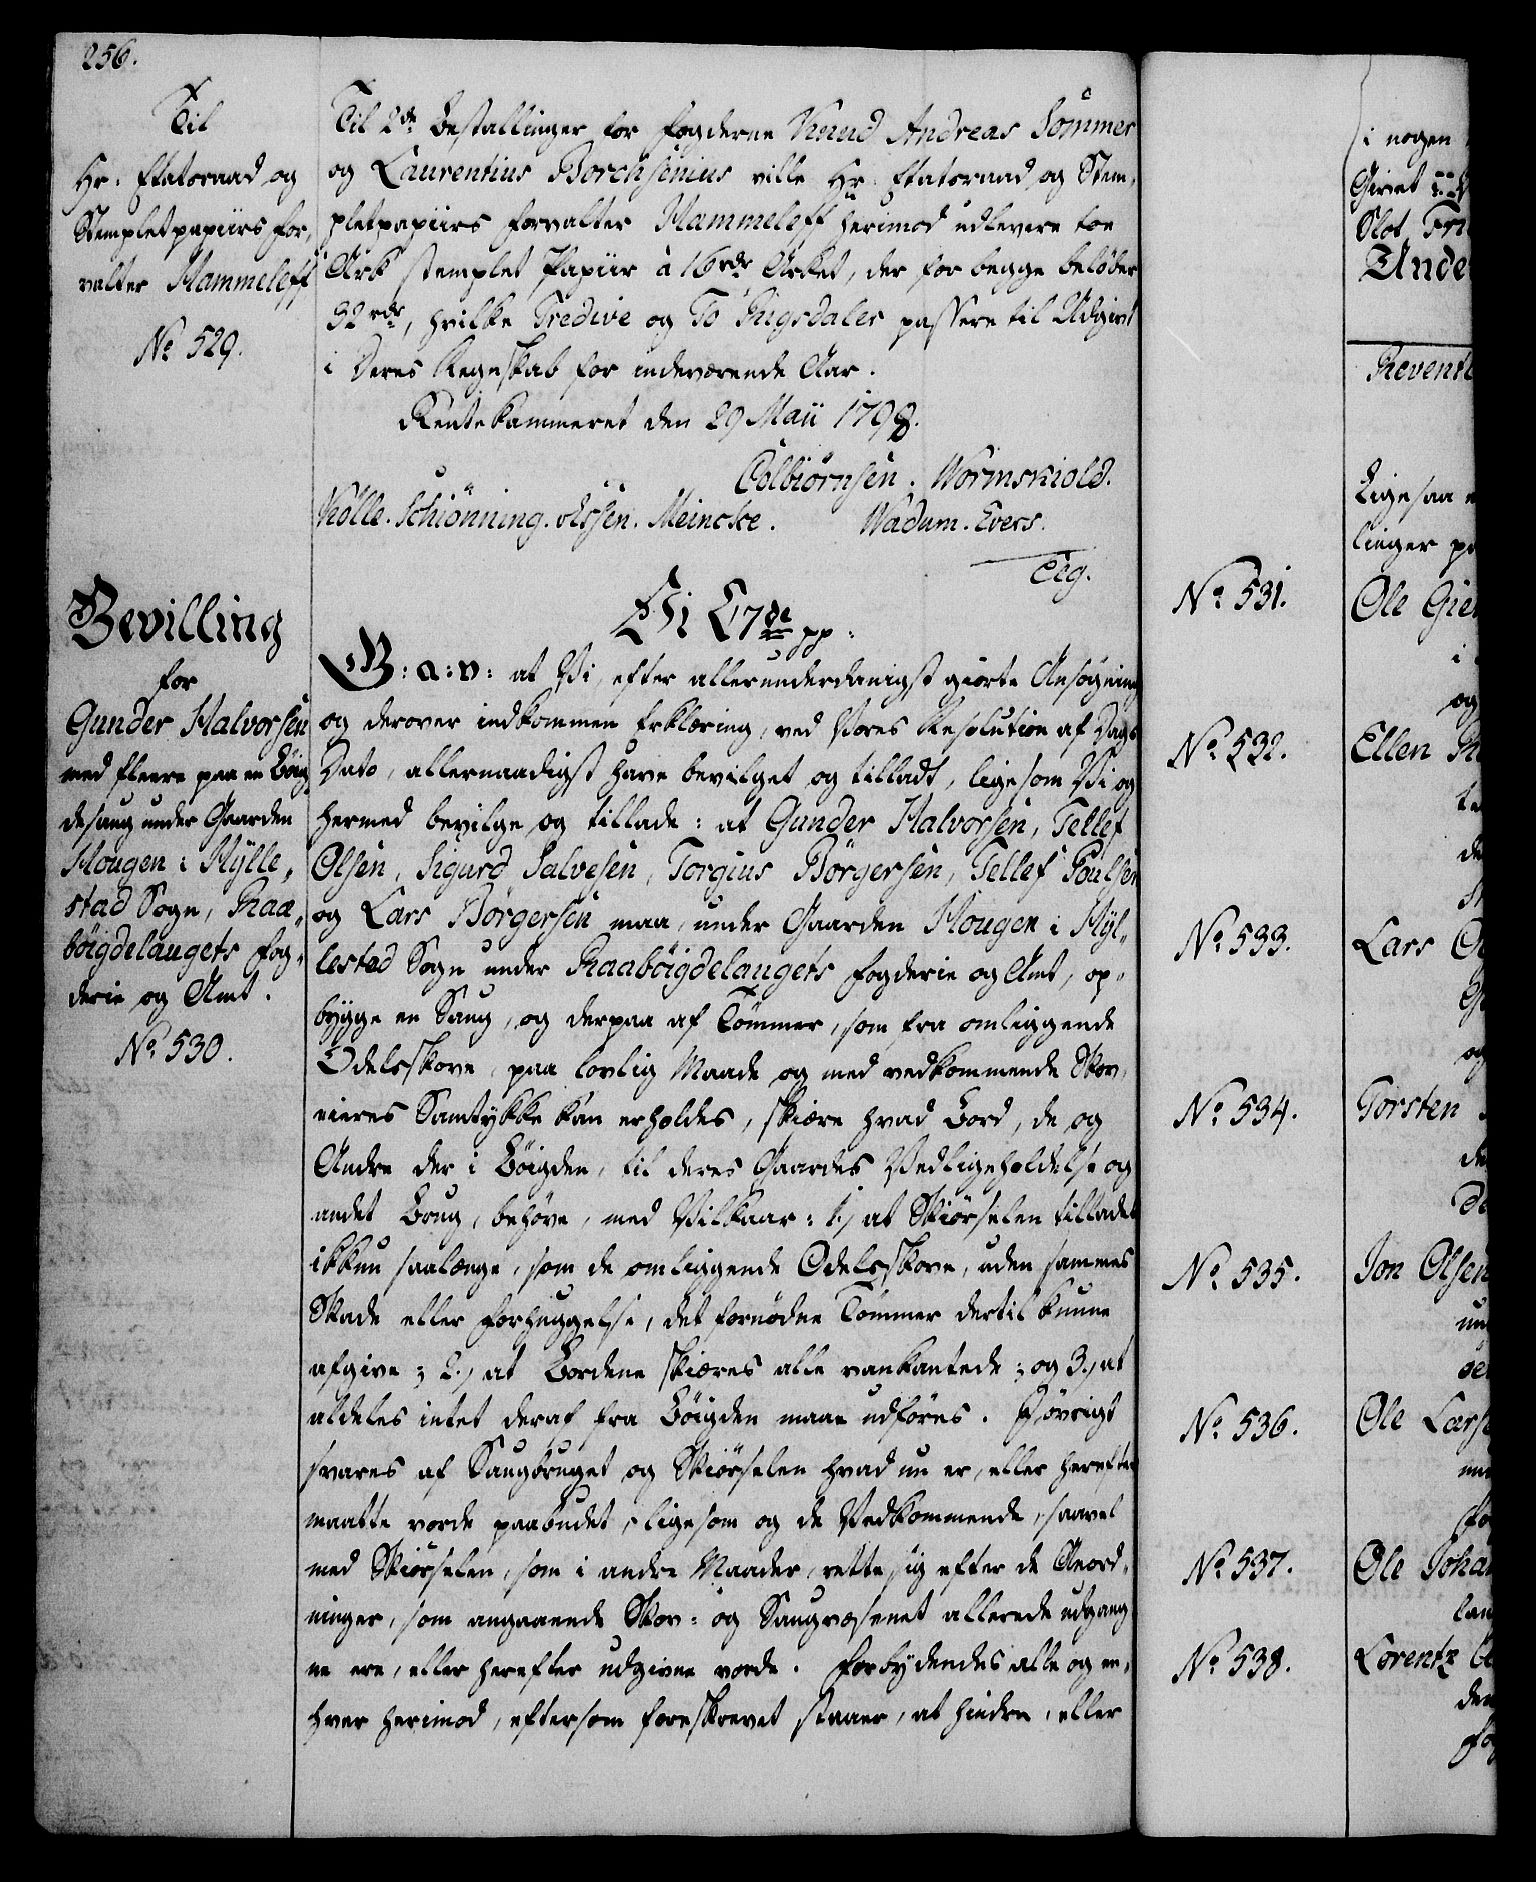 256.
Til
Hr. Etatsraad og
Stempletpapiirs for-
valter Hammeleff
No 529.
Til 2de Bestallinger for Fogderne Knud Andreas Sommer
og Laurentius Borchsenius ville Hr. Etatsraad og Stem-
pletpapiirs Forvalter Hammeleff herimod udlevere toe
Ark stemplet Papiir à 16rdr Arket, der for begge beløber
32rdr, hvilke Tredive og To Rigsdaler passere til Udgivt
i Deres Regnskab for indeværende Aar.
Rentekammeret den 29 Maii 1798.
Colbiørnsen. Wormskiold.
Kølle. Schiønning. Olssen. Meincke. Wadum. Evers.
Bevilling
for
Gunder Halvorsen
med fleere paa en Bøig-
desaug under Gaarden
Hougen i Hylle-
stad Sogn, Raa-
bøigdelaugets Fog-
derie og Amt.
No 530.
Vi C7de pp:
G: a: v: at Vi, efter allerunderdanigst giorte Ansøgning
og derover indkommen Erklæring, ved Vores Resolution af Dags
Dato, allernaadigst have bevilget og tilladt, ligesom Vi og
hermed bevilge og tillade: at Gunder Halvorsen, Tellef
Olsen, Sigurd Salvesen, Torgius Børgersen, Tellef Poulsen
og Lars Børgersen maa, under Gaarden Hougen i Hyl-
lestad Sogn under Raabøigdelaugets Fogderie og Amt, op-
bygge en Saug, og derpaa af Tømmer, som fra omliggende
Odelsskove, paa lovlig Maade og med vedkommende Skov-
eieres Samtykke kan erholdes, skiære hvad Bord, de og
Andre der i Bøigden, til deres Gaardes Vedligeholdelse og
andet Brug, behøve, med Vilkaar: 1.) at Skiørselen tillades
ikkun saalænge, som de omliggende Odelsskove, uden sammes
Skade eller Forhuggelse, det fornødne Tømmer dertil kunne
afgive; 2.) at Bordene skiæres alle vankantede; og 3.) at
aldeles intet deraf fra Bøigden maae udføres. Iøvrigt
svares af Saugbruget og Skiørselen hvad nu er, eller herefter
maatte vorde paabudet, ligesom og de Vedkommende, saavel
med Skiørselen, som i andre Maader, rette sig efter de Anord-
ninger, som angaaende Skov- og Saugvæsenet allerede udgang-
ne ere, eller herefter udgivne vorde. Forbydendes alle og en-
hver herimod, eftersom foreskrevet staaer, at hindre, eller
i nogen
Givet
Slot Fri
Unde
Revent
Ligesaa
linger p
No 531.
Ole Gie
og
No 532.
Ellen
No 533.
Lars
No 534.
Torsten
No 535.
Jon Olsen
No 536.
Ole Lars
No 537.
Ole Joha
No 538.
Lorentz